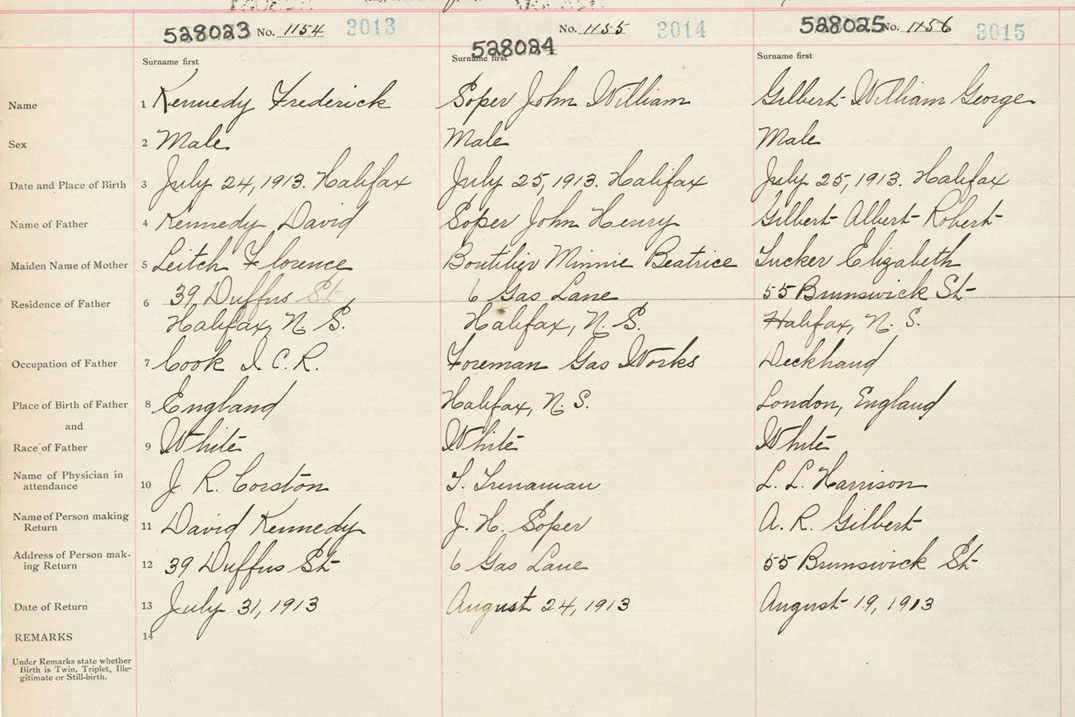 528023 No. 1154 3013 528024 No. 1155 3014 528025 No. 1156 3015
Surname first Surname first Surname first
Name 1 Kennedy Frederick Soper John William Gilbert William George
Sex 2 Male Male Male
Date and Place of Birth 3 July 24, 1913. Halifax July 25, 1913. Halifax July 25, 1913. Halifax
Name of Father 4 Kennedy David Soper John Henry Gilbert Albert Robert
Maiden Name of Mother 5 Leitch Florence Boutilier Minnie Beatrice Tucker Elizabeth
Residence of Father 6 39 Duffus St 6 Gas Lane 55 Brunswick St
Halifax, N. S. Halifax, N. S. Halifax, N. S.
Occupation of Father 7 Cook I. C. R. Foreman Gas Works Deckhand
Place of Birth of Father 8 England Halifax, N. S. London, England
and
Race of Father 9 White White White
Name of Physician in attendance 10 J. R. Corston T. Trenaman L. L. Harrison
Name of Person making Return 11 David Kennedy J. H. Soper A. R. Gilbert
Address of Person mak-ing Return 12 39 Duffus St 6 Gas Lane 55 Brunswick St
Date of Return 13 July 31, 1913 August 24, 1913 August 19, 1913
REMARKS 14
Under Remarks state whether
Birth is Twin, Triplet, Ille-
gitimate or Still-birth.